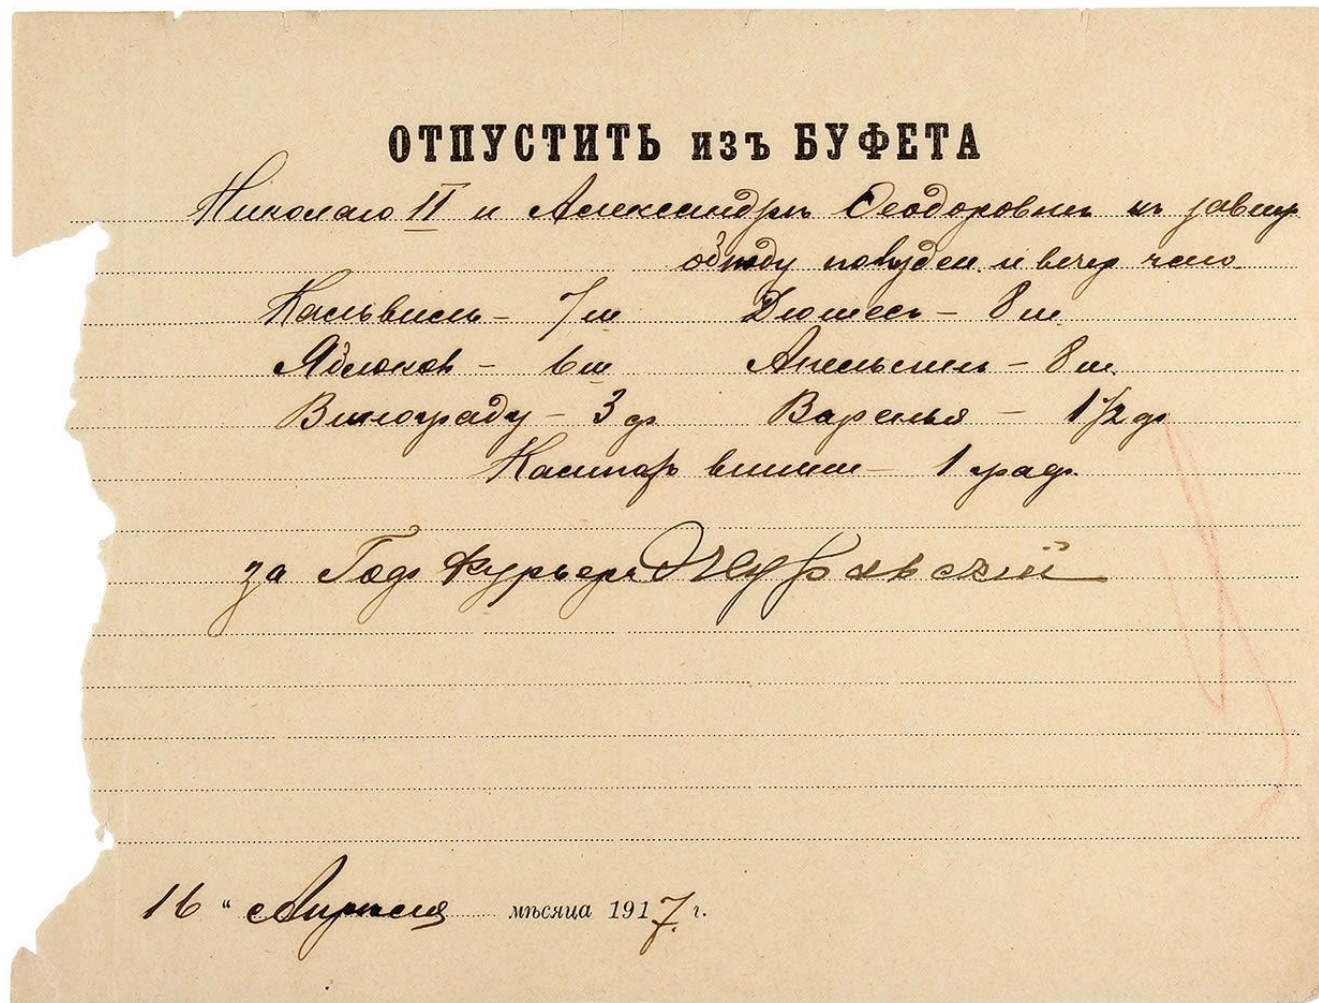 ОТПУСТИТЬ изъ БУФЕТА
Николаю II и Александрѣ Ѳеодоровнѣ къ завтр
обѣду полуден. и вечер чаю.
Кальвиль – 7 ш Дюшесъ – 8 ш.
Яблоковъ – 6 ш Апельсинъ – 8 ш.
Винограду – 3 ф Варенья – 1 1/2 ф
вишни – 1 граф.
за Гоф Курьера
16 " Апрѣля мѣсяца 1917 г.